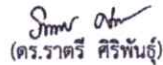 (ดร.ราตรี ศิริพันธุ์)